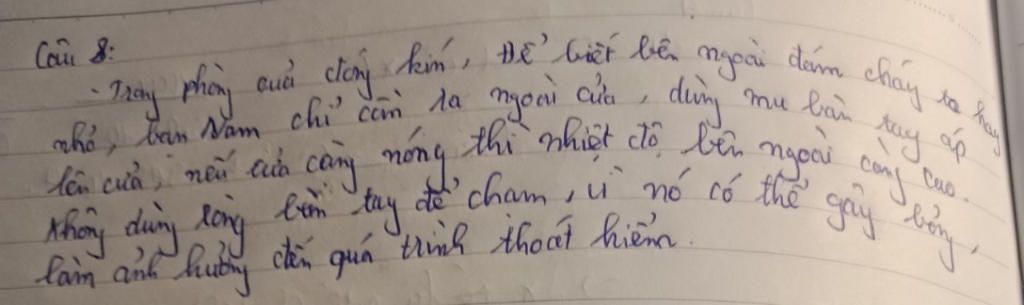 Câu 8:
- Trong phòng cuả đóng kín, Để biết bên ngoài đám cháy to hay
nhỏ, bạn Nam chỉ cần ra ngoài cửa, dùng mu bàn tay áp
lên cửa, nếu cửa càng nóng thì nhiệt độ bên ngoài càng cao.
Không dùng lòng bàn tay để chạm, vì nó có thể gây bỏng,
làm ảnh hưởng đến quá trình thoát hiểm.